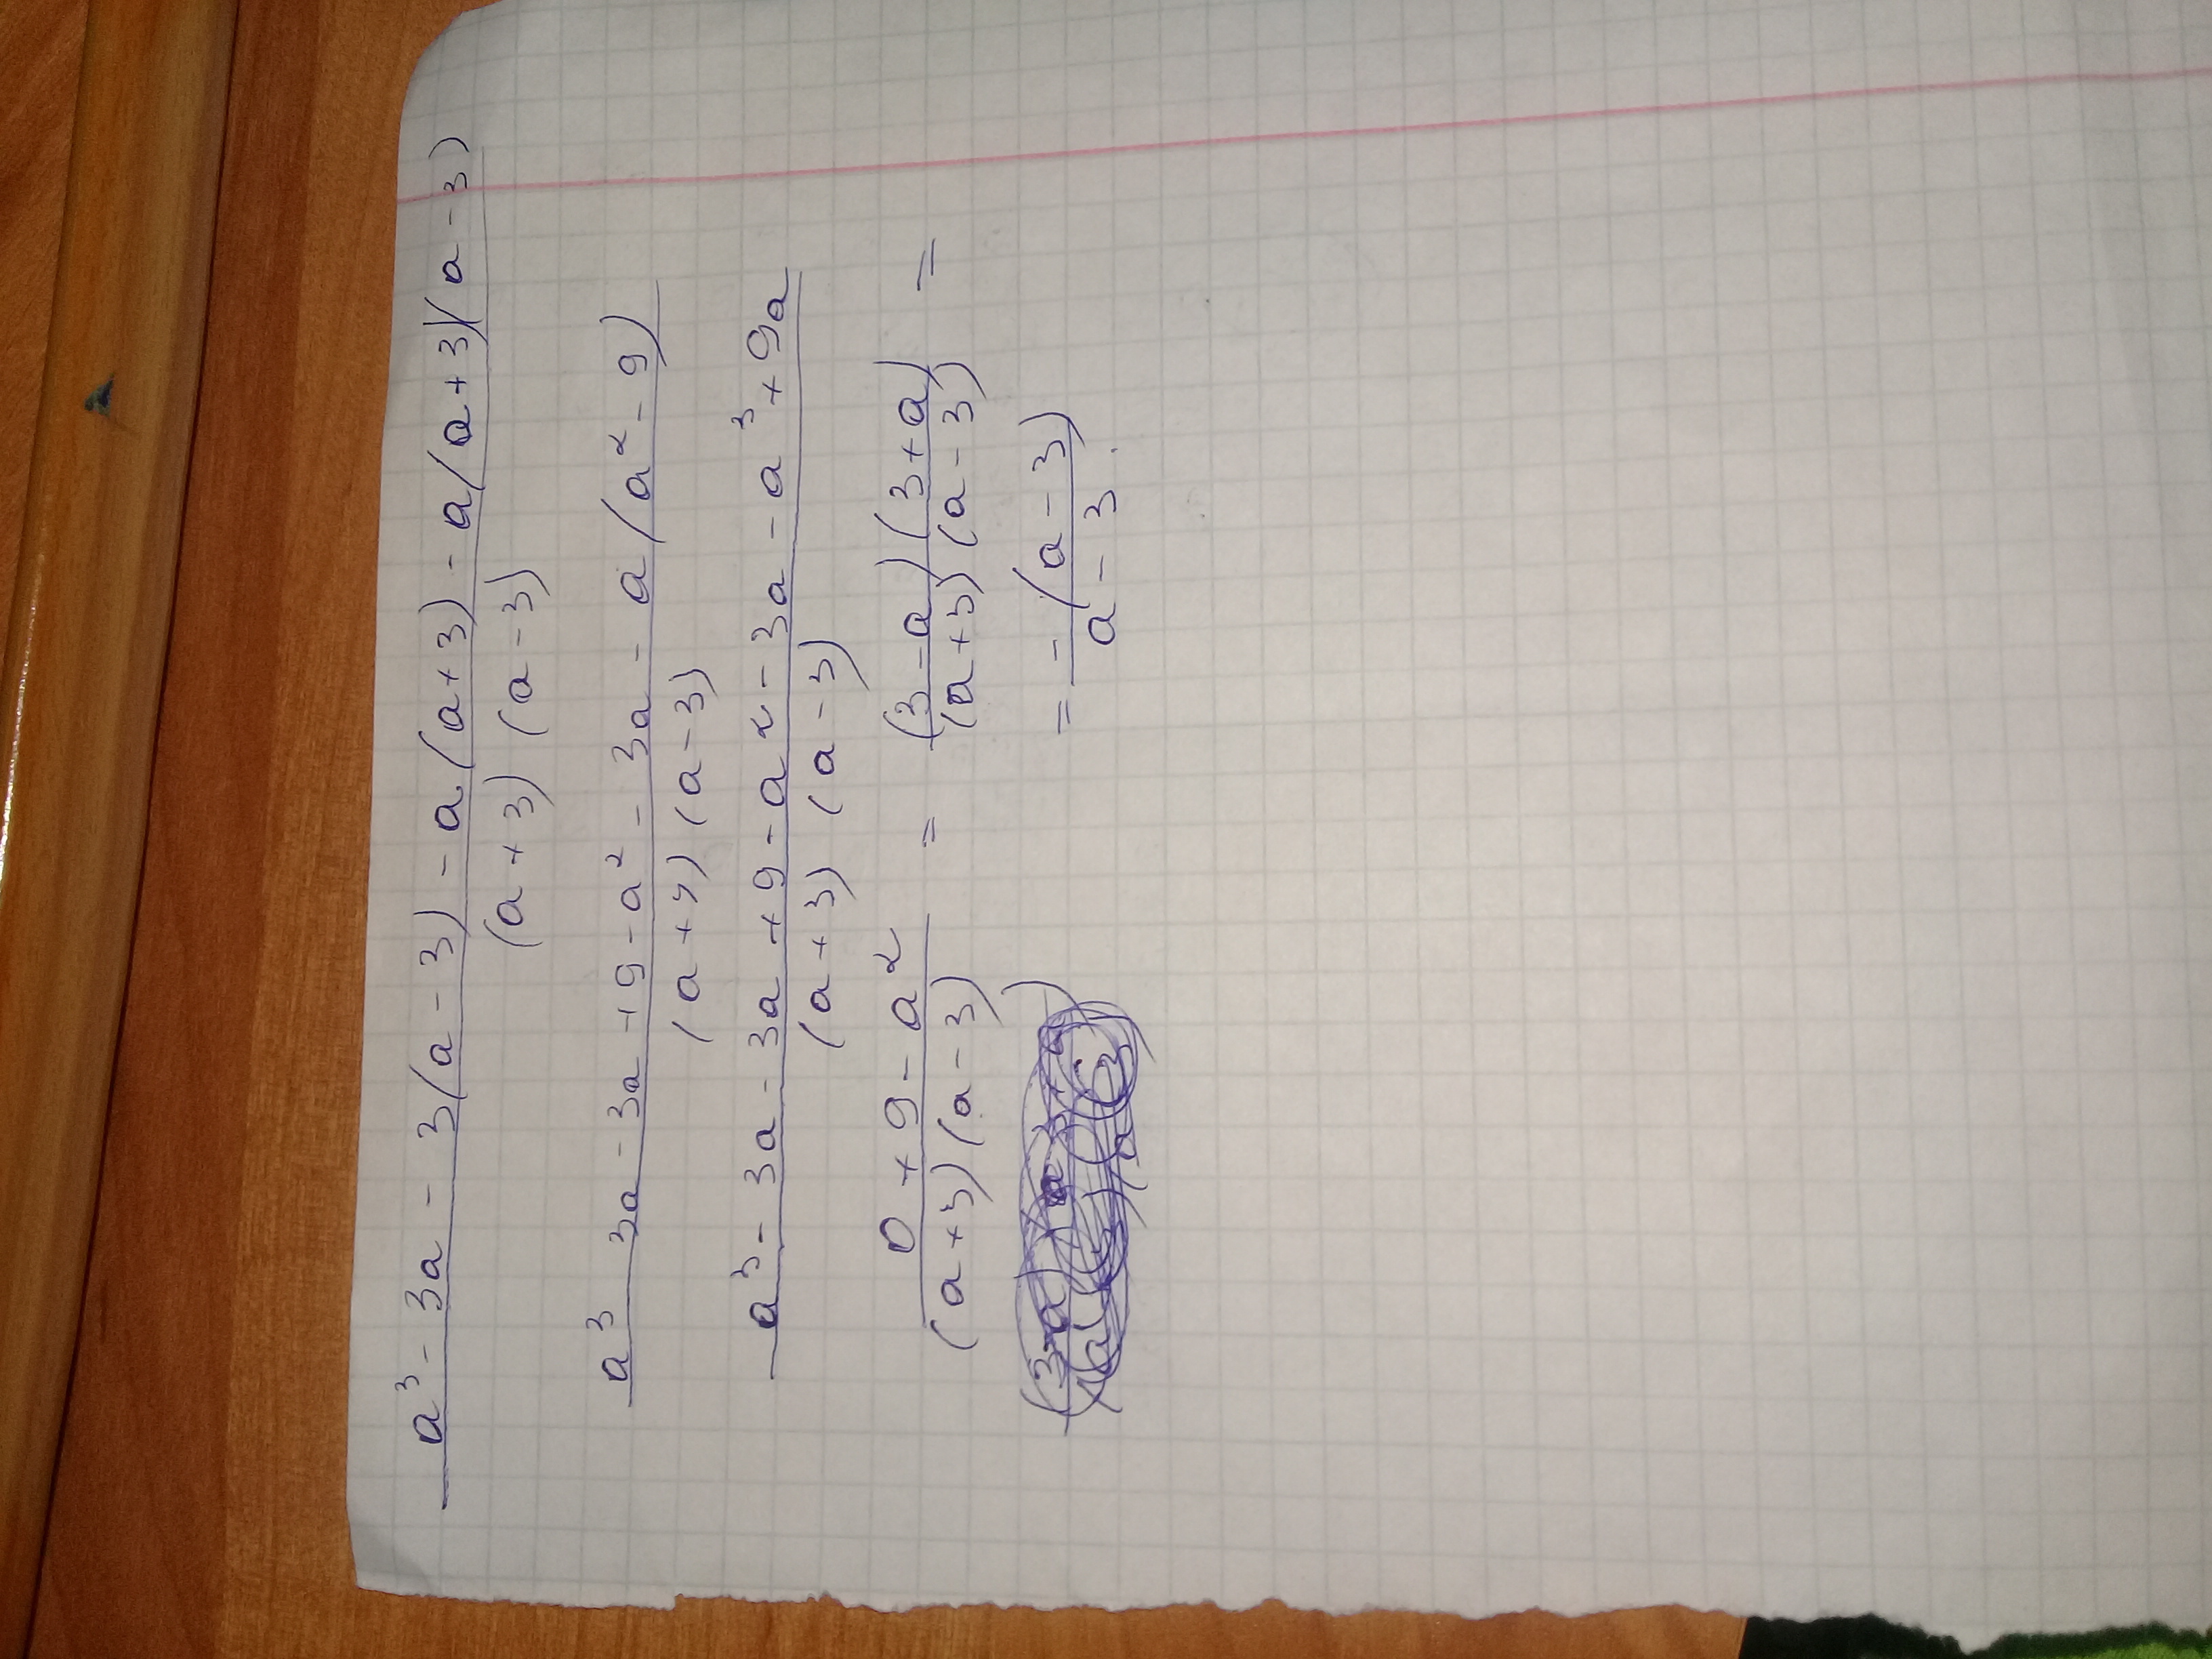 a³ - 3a - 3(a - 3) - a(a+3) - a(a+3)(a-3)
(a+3)(a-3)
a³ 3a - 3a + 9 - a² - 3a - a(a² - 9)
(a+3)(a-3)
a³ - 3a - 3a + 9 - a² - 3a - a³ + 9a
(a+3)(a-3)
0 + 9 - a² = (3-a)(3+a) =
(a+3)(a-3) (a+3)(a-3)
= -(a-3)
a-3.